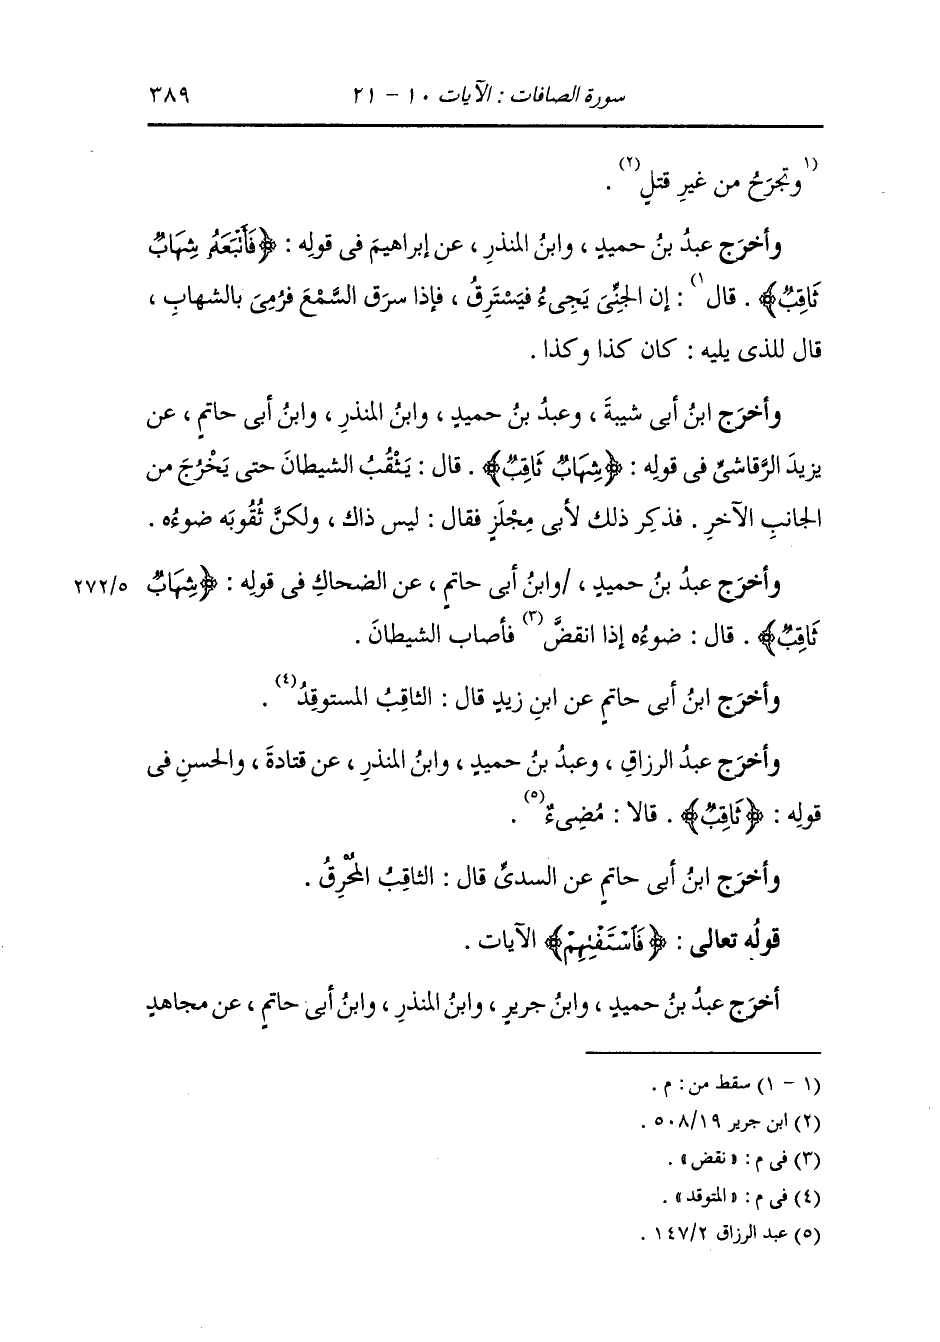 سورة الصافات : الآيات ١٠ - ٢١ ٣٨٩
(١وتجرَحُ من غيرِ قتلٍ(٢) .
وأخرَج عبدُ بنُ حميدٍ ، وابنُ المنذرِ ، عن إبراهيمَ فى قولِه : ﴿فَأَتْبَعَهُ شِهَابٌ
ثَاقِبٌ﴾ . قال١) : إن الجنِّىَّ يَجِىءُ فيَسْتَرِقُ ، فإذا سرَق السَّمْعَ فرُمِىَ بالشهابِ ،
قال للذى يليه : كان كذا وكذا .
وأخرَج ابنُ أبى شيبةَ ، وعبدُ بنُ حميدٍ ، وابنُ المنذرِ ، وابنُ أبى حاتمٍ ، عن
يزيدَ الرَّقاشىِّ فى قولِه : ﴿شِهَابٌ ثَاقِبٌ﴾ . قال : يَثْقُبُ الشيطانَ حتى يَخْرُجَ من
الجانبِ الآخرِ . فذكِر ذلك لأبى مِجْلَزٍ فقال : ليس ذاك ، ولكنَّ ثُقُوبَه ضوءُه .
وأخرَج عبدُ بنُ حميدٍ ، /وابنُ أبى حاتمٍ ، عن الضحاكِ فى قولِه : ﴿شِهَابٌ ٢٧٢/٥
ثَاقِبٌ﴾ . قال : ضوءُه إذا انقضَّ(٣) فأصاب الشيطانَ .
وأخرَج ابنُ أبى حاتمٍ عن ابنِ زيدٍ قال : الثاقِبُ المستوقِدُ(٤) .
وأخرَج عبدُ الرزاقِ ، وعبدُ بنُ حميدٍ ، وابنُ المنذرِ ، عن قتادةَ ، والحسنِ فى
قولِه : ﴿ثَاقِبٌ﴾ . قالا : مُضِىءٌ(٥) .
وأخرَج ابنُ أبى حاتمٍ عن السدىِّ قال : الثاقِبُ المُحْرِقُ .
قولُه تعالى : ﴿فَاسْتَفْتِهِمْ﴾ الآيات .
أخرَج عبدُ بنُ حميدٍ ، وابنُ جريرٍ ، وابنُ المنذرِ ، وابنُ أبى حاتمٍ ، عن مجاهدٍ
(١ - ١) سقط من : م .
(٢) ابن جرير ٥٠٨/١٩ .
(٣) فى م : « نقض » .
(٤) فى م : « المتوقد » .
(٥) عبد الرزاق ١٤٧/٢ .